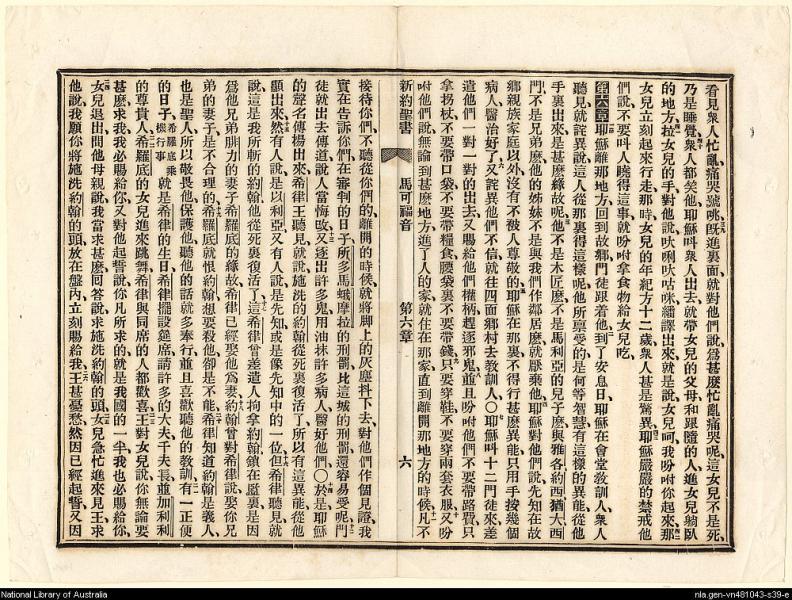 看見衆人忙亂痛哭號咷旣進裏面就對他們說爲甚麽忙亂痛哭呢這女兒不是死
乃是睡覺衆人都笑他耶穌叫衆人出去就帶女兒的父母和跟隨的人進女兒躺臥
的地方拉女兒的手對他說吠唎吠咕咪繙譯出來就是說女兒呵我吩咐你起來那
女兒立刻起來行走那時女兒的年紀方十二歲衆人甚是驚異耶穌嚴嚴的禁戒他
們說不要叫人曉得這事就吩咐拿食物給女兒吃
第六章耶穌離那地方回到故鄉門徒跟着他到了安息日耶穌在會堂敎訓人衆人
聽見就詫異說這人從那裏得這樣呢他所禀受的是何等智慧有這樣的異能從他
手裏出來是甚麽緣故呢他不是木匠麽不是馬利亞的兒子麽與雅各約西猶大西
門不是兄弟麽他的姊妹不是與我們作鄰居麽就厭棄他耶穌對他們說先知在故
鄉親族家庭以外沒有不被人尊敬的耶穌在那裏不得行甚麽異能只用手按幾個
病人醫治好了又詫異他們不信就往四面鄉村去敎訓人〇耶穌叫十二門徒來差
遣他們一對一對的出去又賜給他們權柄趕逐邪鬼並且吩咐他們不要帶路費只
拿拐杖不要帶口袋不要帶糧食腰袋裏不要帶錢只要穿鞋不要穿兩套衣服又吩
咐他們說無論到甚麽地方進了人的家就住在那家直到離開那地方的時候凡不
新約聖書 馬可福音 第六章 六
接待你們不聽從你們的離開的時候就將脚上的灰塵抖下去對他們作個見證我
實在告訴你們在審判的日子所多馬蛾摩拉的刑罰比這城的刑罰還容易受呢門
徒就出去傳道說人當悔改又逐出許多鬼用油抹許多病人醫好他們〇於是耶穌
的聲名傳揚出來希律王聽見就說施洗的約翰從死裏復活了所以有這異能從他
顯出來然有人說是以利亞又有人說是先知或是像先知中的一位但希律聽見就
說這是我所斬的約翰他從死裏復活了這希律曾差遣人拘拿約翰鎖在監裏是因
爲他兄弟腓力的妻子希羅底的緣故希律已經娶他爲妻約翰曾對希律說娶你兄
弟的妻子是不合理的希羅底就恨約翰想要殺他卻是不能希律知道約翰是義人
也是聖人所以敬畏他保護他聽他的話就多奉行並且喜歡聽他的敎訓有一正便
的日子希羅底乘機行事就是希律的生日希律擺設筵席請許多的大夫千夫長並加利利
的尊貴人希羅底的女兒進來跳舞希律與同席的人都歡喜王對女兒說你無論要
甚麽求我我必賜給你又對他起誓說你凡所求的就是我國的一半我也必賜給你
女兒退出問他母親說我當求甚麽回答說求施洗約翰的頭女兒急忙進來見王求
他說我願你將施洗約翰的頭放在盤內立刻賜給我王甚憂愁然因已經起誓又因
National Library of Australia
nla.gen-vn481043-s39-e